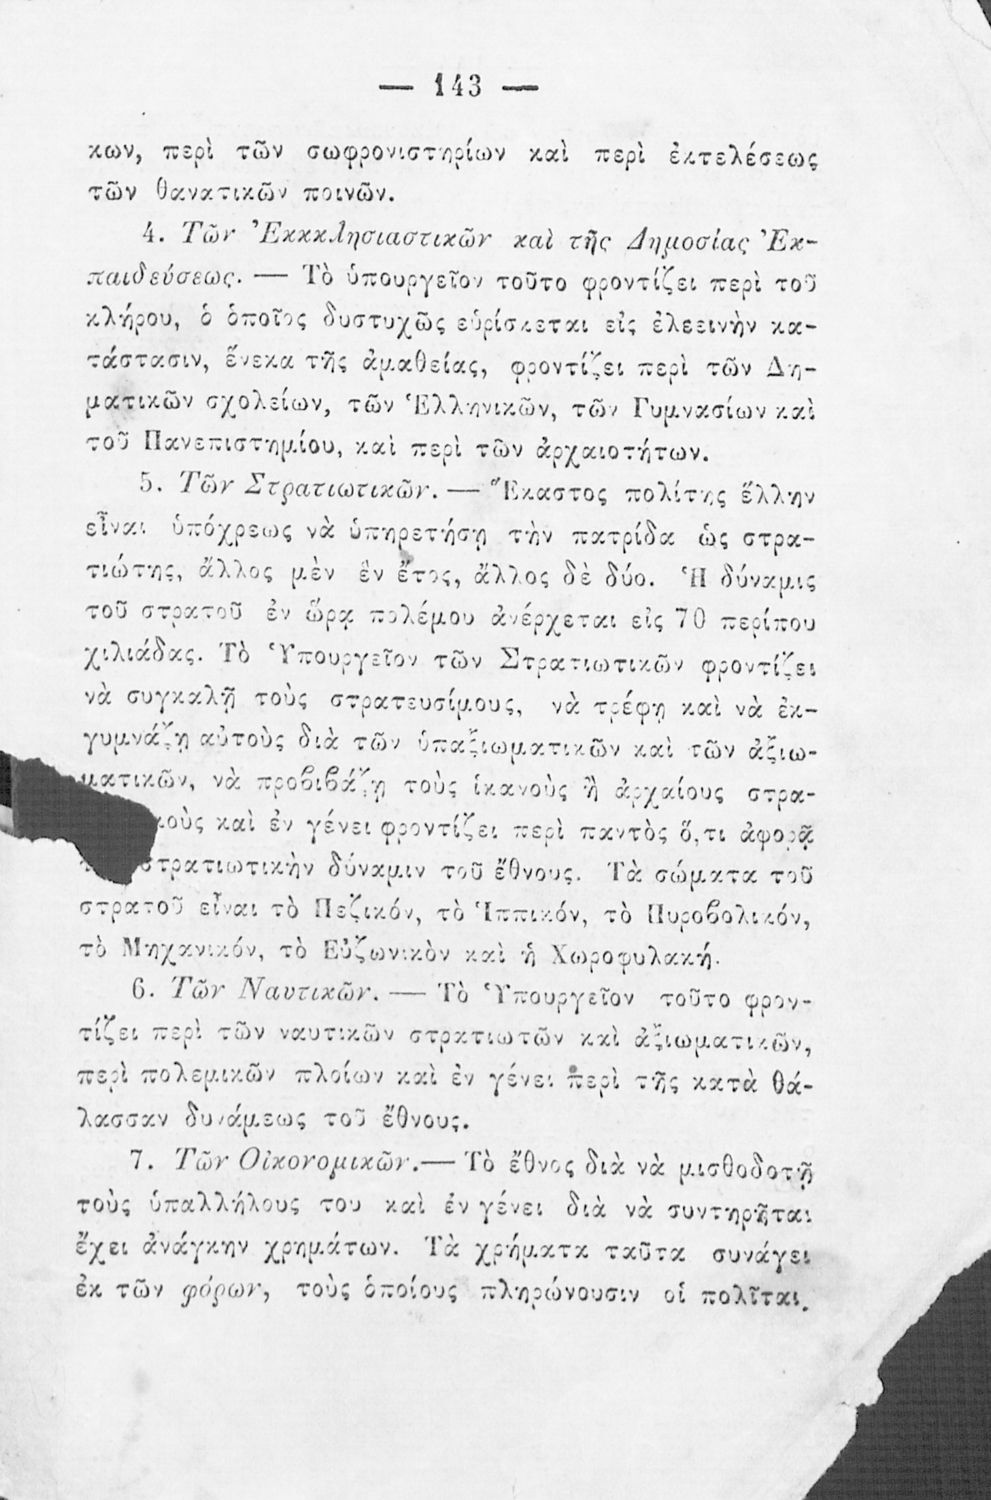 — 143 —
κων, περὶ τῶν σωφρονιστηρίων καὶ περὶ ἐκτελέσεως
τῶν θανατικῶν ποινῶν.
4. Τῶν Ἐκκκλησιαστικῶν καὶ τῆς Δημοσίας Ἐκ-
παιδεύσεως. — Τὸ ὑπουργεῖον τοῦτο φροντίζει περὶ τοῦ
κλήρου, ὁ ὁποῖος δυστυχῶς εὑρίσκεται εἰς ἐλεεινὴν κα-
τάστασιν, ἕνεκα τῆς ἀμαθείας, φροντίζει περὶ τῶν Δη-
ματικῶν σχολείων, τῶν Ἑλληνικῶν, τῶν Γυμνασίων καὶ
τοῦ Πανεπιστημίου, καὶ περὶ τῶν ἀρχαιοτήτων.
5. Τῶν Στρατιωτικῶν. — Ἕκαστος πολίτης ἕλλην
εἶναι ὑπόχρεως νὰ ὑπηρετήσῃ τὴν πατρίδα ὡς στρα-
τιώτης, ἄλλος μὲν ἓν ἔτος, ἄλλος δὲ δύο. Ἡ δύναμις
τοῦ στρατοῦ ἐν ὥρᾳ πολέμου ἀνέρχεται εἰς 70 περίπου
χιλιάδας. Τὸ Ὑπουργεῖον τῶν Στρατιωτικῶν φροντίζει
νὰ συγκαλῇ τοὺς στρατευσίμους, νὰ τρέφῃ καὶ νὰ ἐκ-
γυμνάζῃ αὐτοὺς διὰ τῶν ὑπαξιωματικῶν καὶ τῶν ἀξιω-
ματικῶν, νὰ προβιβάζῃ τοὺς ἱκανοὺς ἢ ἀρχαίους στρα-
κοὺς καὶ ἐν γένει φροντίζει περὶ παντὸς ὅ,τι ἀφορᾷ
στρατιωτικὴν δύναμιν τοῦ ἔθνους. Τὰ σώματα τοῦ
στρατοῦ εἶναι τὸ Πεζικόν, τὸ Ἱππικόν, τὸ Πυροβολικόν,
τὸ Μηχανικόν, τὸ Εὐζωνικὸν καὶ ἡ Χωροφυλακή.
6. Τῶν Ναυτικῶν. — Τὸ Ὑπουργεῖον τοῦτο φρον-
τίζει περὶ τῶν ναυτικῶν στρατιωτῶν καὶ ἀξιωματικῶν,
περὶ πολεμικῶν πλοίων καὶ ἐν γένει περὶ τῆς κατὰ θά-
λασσαν δυνάμεως τοῦ ἔθνους.
7. Τῶν Οἰκονομικῶν.— Τὸ ἔθνος διὰ νὰ μισθοδοτῇ
τοὺς ὑπαλλήλους του καὶ ἐν γένει διὰ νὰ συντηρῆται
ἔχει ἀνάγκην χρημάτων. Τὰ χρήματα ταῦτα συνάγει
ἐκ τῶν φόρων, τοὺς ὁποίους πληρώνουσιν οἱ πολῖται.